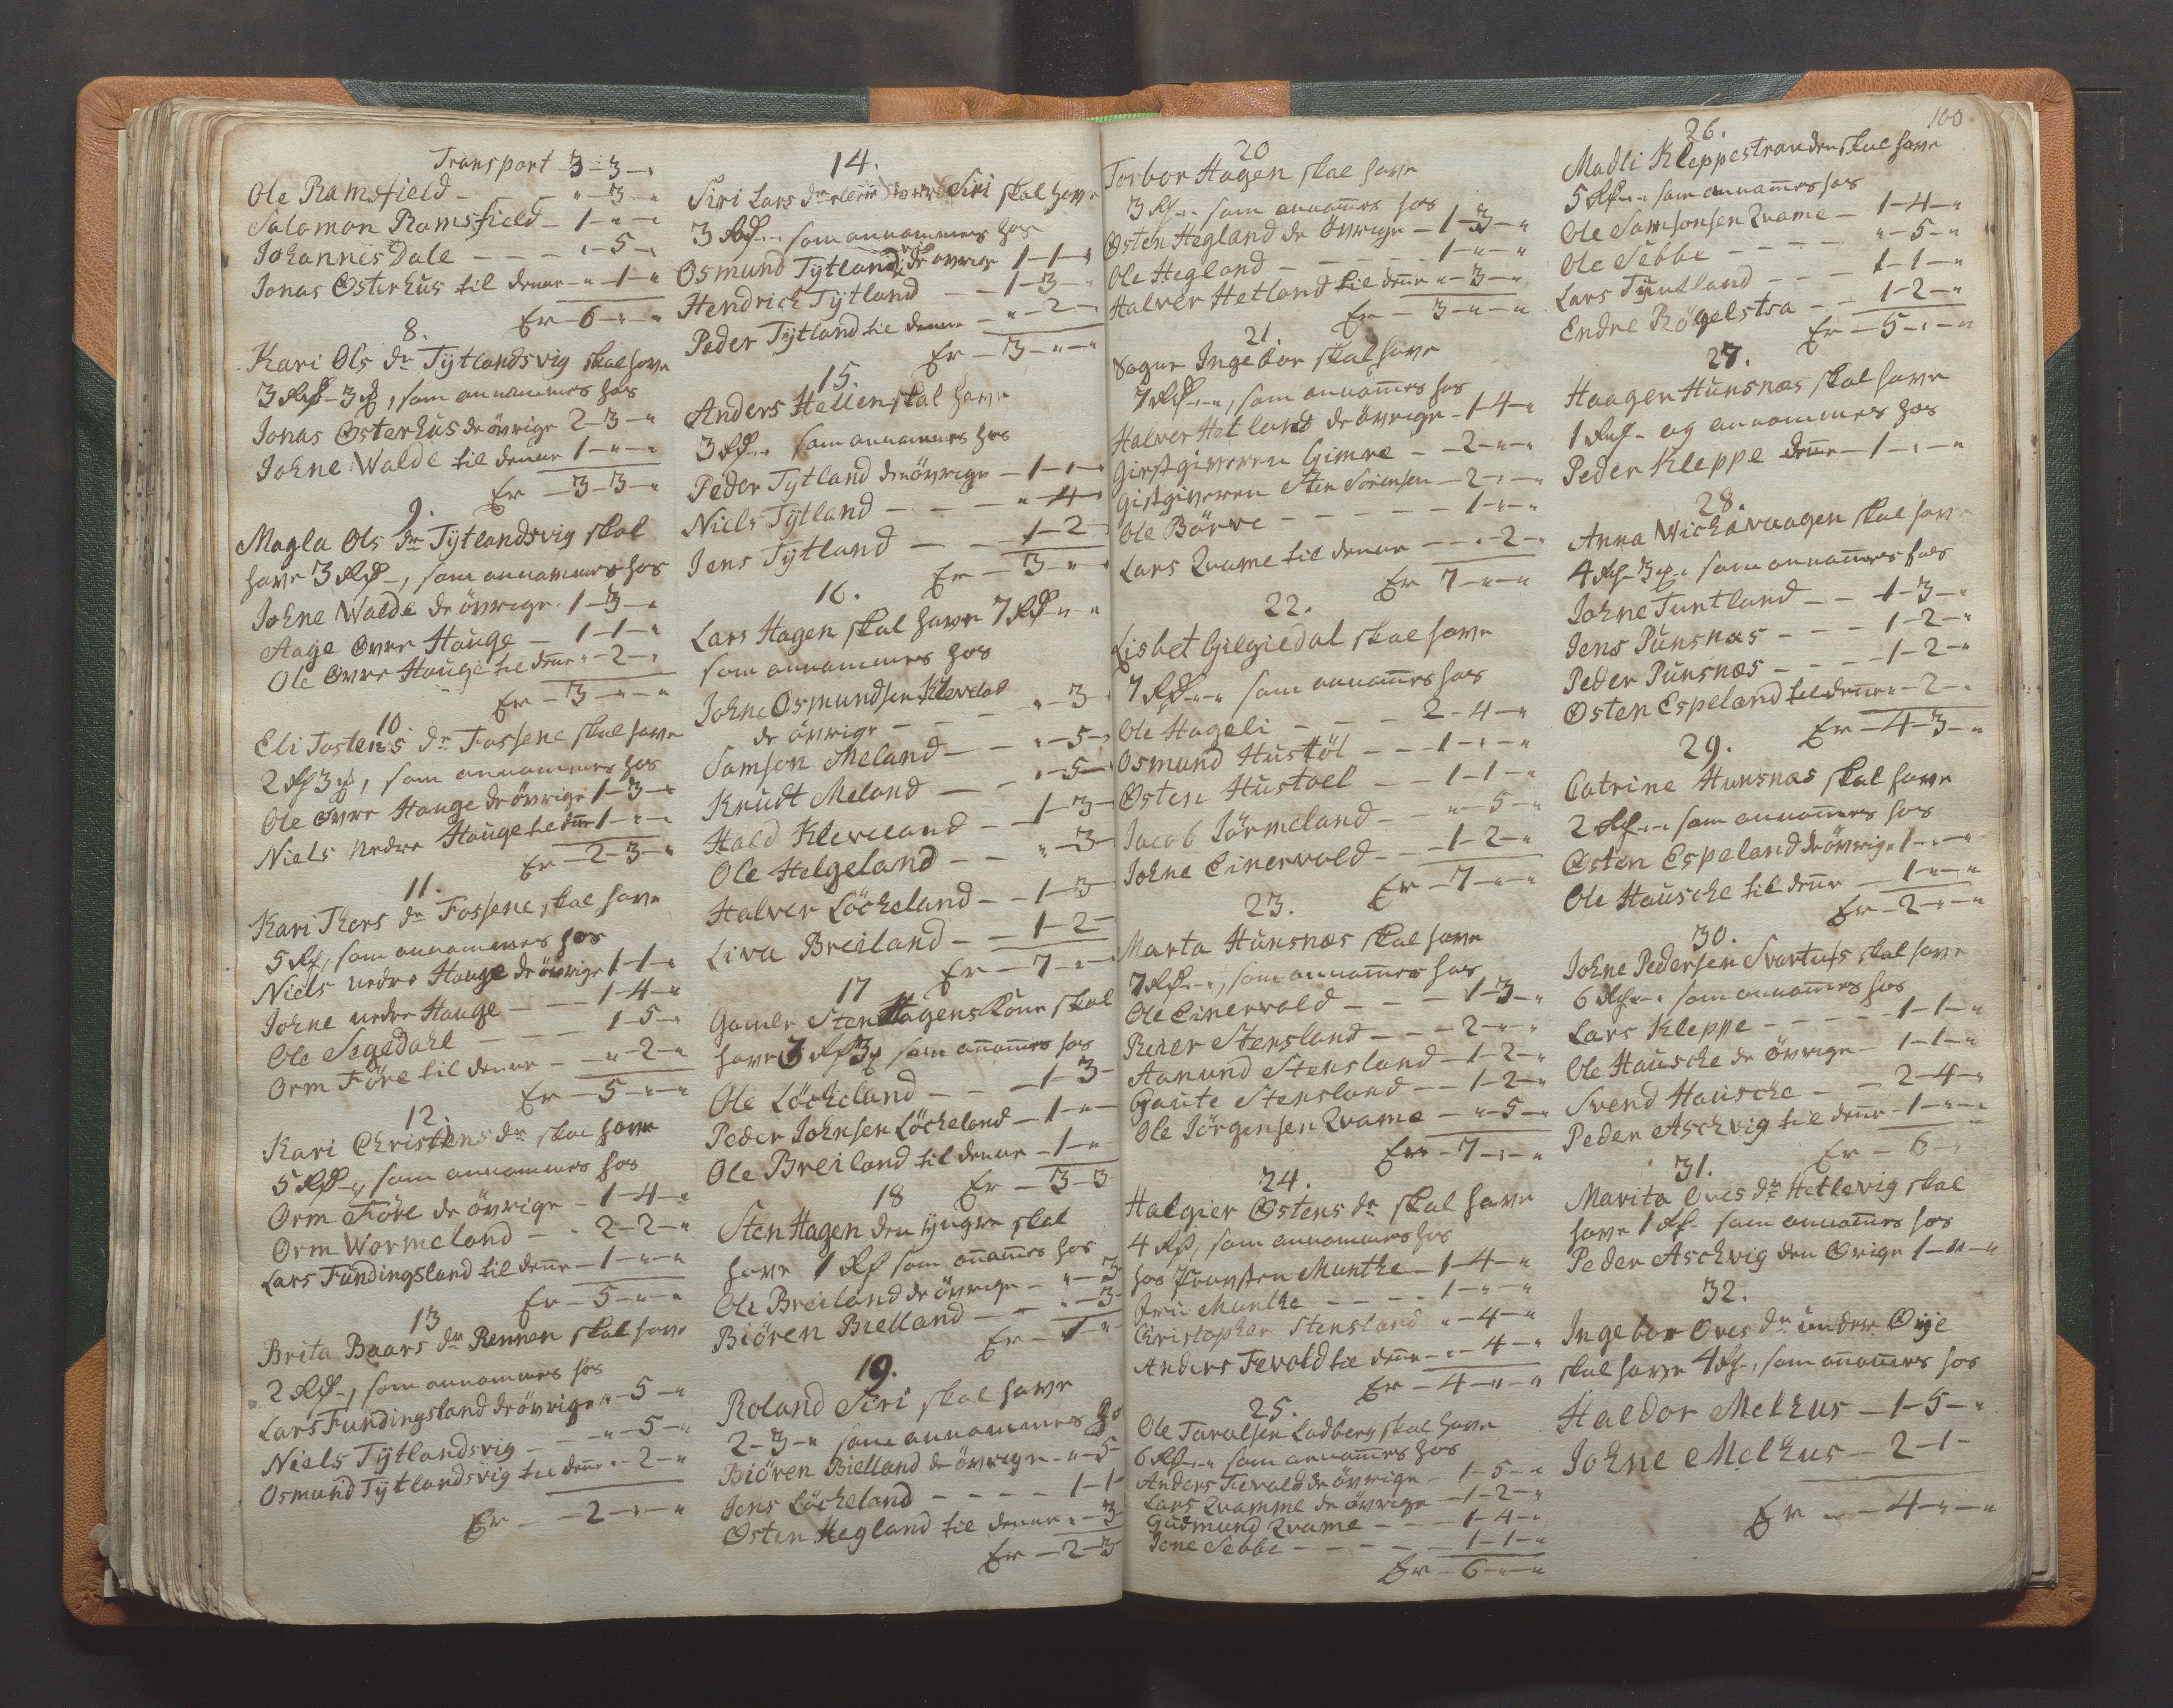 Transport 3-3-"
Ole Ramsfield - - - "-3-"
Salomon Ramsfield - 1-"-"
Johannes Dale - - - "-5-"
Jonas Østerhus til denne - "-1-"
Er - 6-"-"
8.
Kari Ols dr Tytlandsvig skal have
3 Rd - 3 , som annammes hos
Jonas Østerhus de øvrige 2-3-"
Johne Walde til denne 1-"-"
Er - 3-3-"
9.
Magla Ols dr Tytlandsvig skal
have 3 Rd -, som annammes hos
Johne Walde de øvrige 1-3-"
Aage Øvre Hauge - 1-1-"
Ole Øvre Hauge til dene "-2-"
Er - 3-"-"
10.
Eli Tostens dr Fossene skal have
2 Rd 3 , som annammes hos
Ole Øvre Hauge de øvrige 1-3-"
Niels Nedre Hauge til dene 1-"-"
Er - 2-3-"
11.
Kari Thors dr Fossene skal have
5 Rd, som annammes hos
Niels nedre Hauge de øvrige 1-1-"
Johne nedre Hauge - - 1-4-"
Ole Segedahl - - - 1-5-"
Orm Føre til denne - - "-2-"
Er - 5-"-"
12.
Kari Christens dr skal have
5 Rd -, som annammes hos
Orm Føre de øvrige - 1-4-"
Orm Wormeland - - 2-2-"
Lars Fundingsland til dene - 1-"-"
Er - 5-"-"
13
Brita Baars dr Rennen skal have
2 Rd -, som annammes hos
Lars Fundingsland de øvrige "-5-"
Niels Tytlandsvig - - - "-5-"
Osmund Tytlandsvig til dene "-2-"
Er - - 2-"-"
14.
Siri Lars dr Siri skal have
3 Rd - - som annammes hos
Osmund Tytlandsvig de øvrige 1-1-"
Hendrich Tytland - 1-3-"
Peder Tytland til denne - "-2-"
Er - 3-"-"
15.
Anders Hellen skal have
3 Rd - - som annammes hos
Peder Tytland de øvrige - 1-"-"
Niels Tytland - - - "-4-"
Jens Tytland - - 1-2-
Er - 3-"-"
16.
Lars Hagen skal have 7 Rd -"-"
som annammes hos
Johne Osmundsen Kleveland
de øvrige - - - "-3-
Samson Meland - - "-5-
Knudt Meland - - "-5-
Hald Kleveland - - 1-3-
Ole Helgeland - - "-3-
Halver Løcheland - - 1-3-
Liva Breiland - - 1-2-
Er - 7-"-"
17
Gamle Sten Hagens Kone skal
have 3 Rd 3 som anames hos
Ole Løcheland - - - 1-3-
Peder Johnsen Løcheland - 1-"-
Ole Breiland til denne - 1-"-
Er - 3-3
18
Sten Hagen den yngre skal
have 1 Rd som anames hos
Ole Breiland de øvrige - "-3-
Biøren Bielland - - "-3-
Er - 1-"
19.
Roland Siri skal have
2-3-" som annammes hos
Biøren Bielland de øvrige - "-5-
Jens Løcheland - - - - 1-1-
Østen Hegland til denne "-3-
Er - 2-3
20
Torbor Hagen skal have
3 Rd - - som annames hos
Østen Hegland de øvrige - 1-3-"
Ole Hegland - - - - 1-"-"
Halver Hetland til dene "-3-"
Er - 3-"-"
21.
Sogne Ingebor skal have
7 Rd - -, som annames hos
Halver Hetland de øvrige - 1-4-"
Giestgiveren Gimre - - 2-"-"
Gistgiveren Sten Sørensen - 2-"-"
Ole Børve - - - - - 1-"-"
Lars Qvame til denne - - "-2-"
Er 7-"-"
22.
Lisbet Gilgiedal skal have
7 Rd - - som annames hos
Ole Hageli - - - 2-4-"
Osmund Hustøl - - 1-"-"
Østen Hustoel - - 1-1-"
Jacob Jørmeland - - "-5-"
Johne Einervold - - 1-2-"
Er - 7-"-"
23.
Marta Hunsnæs skal have
7 Rd - -, som annames hos
Ole Einervold - - - 1-3-"
Peder Stensland - - 2-"-"
Aanund Stensland - 1-2-"
Gaute Stensland - - 1-2-"
Ole Jørgensen Qvame - "-5-"
Er - 7-"-"
24.
Halgier Østens dr skal have
4 Rd, som annammes hos
hos Torsten Munthe - 1-4-"
Munthe - - - - 1-"-"
Christopher Stensland "-4-"
Anders Tevold til dene - "-4-"
Er - 4-"-"
25.
Ole Taralsen Ladberg skal have
6 Rd - - som annames hos
Anders Tievold de øvrige - 1-5-"
Lars Qvamme de øvrige - 1-2-"
Gudmund Qvame - - - 1-4-"
Jone Sebbe - - - - - 1-1-"
Er - 6-"-"
100
26.
Madli Kleppestranden skal have
5 Rd - - som annames hos
Ole Samsonsen Qvame - 1-4-"
Ole Sebbe - - - - "-5-"
Lars Tuntland - - - 1-1-"
Endre Røgelstra - - 1-2-"
Er - 5-"-"
27.
Haagen Hunsnæs skal have
1 Rd - og annammes hos
Peder Kleppe dene - 1-"-"
28.
Anna Wichavaagen skal have
4 Rd 3 - som annames hos
Johne Tuntland - - 1-3-"
Jens Punsnæs - - - 1-2-"
Peder Punsnæs - - - 1-2-"
Østen Espeland til dene "-2-"
Er - 4-3-"
29.
Catrine Hunsnæs skal have
2 Rd - - som annames hos
Østen Espeland de øvrige 1-"-"
Ole Hausche til dene - 1-"-"
Er - 2-"-"
30.
Johne Pedersen Svartufs skal have
6 Rd - - som annames hos
Lars Kleppe - - - - 1-1-"
Ole Hausche de øvrige - 1-1-"
Svend Hausche - - 2-4-"
Peder Aschvig til dene - 1-"-"
Er - 6-"
31.
Marita Oves dr Hetlevig skal
have 1 Rd - som annames hos
Peder Aschvig den Øvrige 1-"-"
32.
Ingebor Oves dr under Øye
skal have 4 Rd -, som anames hos
Haldor Melhus - 1-5-"
Johne Melhus - 2-1-
Er - - 4-"-"